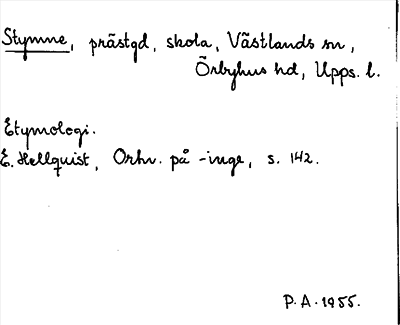 Stymne, prästgd, skola, Västlands sn,
Örbyhus hd, Upps. l.
Etymologi.
E. Hellquist, Ortn. på -inge, s. 142.
P.A. 1955.